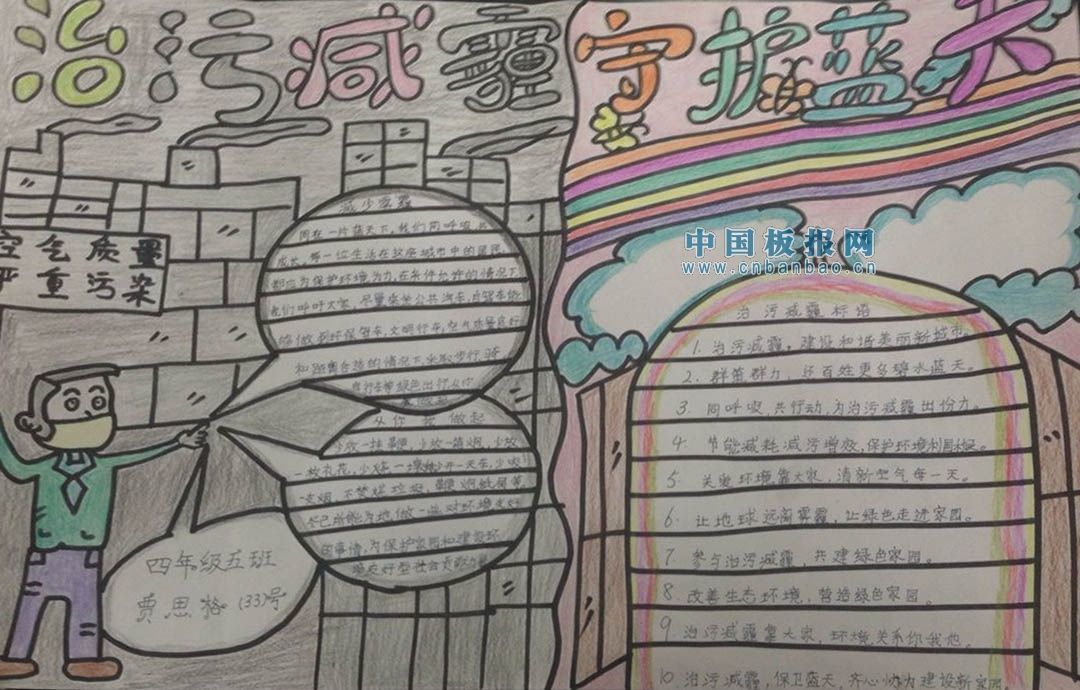 治污减霾守护蓝天
空气质量
严重污染
减少雾霾
同在一片蓝天下,我们同呼吸
成长,每一位生活在这座城市中的居民
都应为保护环境力,在条件允许的情况下
我们呼吁大家,尽量乘坐公共汽车,自驾车
做到环保驾车,文明行车;空气质量良好
和距离合适的情况下采取步行,骑
自行车等绿色出行,从你
从你我做起
少放一挂鞭炮,少放一箱烟,少放
一枚礼花,少烧一,少开一天车,少吸
支烟,不焚烧垃圾
己所能为地做一些对环境友好
的事情,为保护家园和建设环
境友好型社会贡献力量
四年级五班
费思格(33)号
中国板报网
www.cnbanbao.cn
治污减霾标语
1.治污减霾,建设和谐美丽新城市。
2.群策群力,还百姓更多碧水蓝天。
3.同呼吸,共行动,为治污减霾出份力。
4.节能减耗,减污增效,保护环境
5.关爱环境靠大家,清新空气每一天。
6.让地球远离雾霾,让绿色走进家园。
7.参与治污减霾,共建绿色家园。
8.改善生态环境,营造绿色家园。
9.治污减霾靠大家,环境关系你我他。
10.治污减霾,保卫蓝天,齐心协力建设新家园